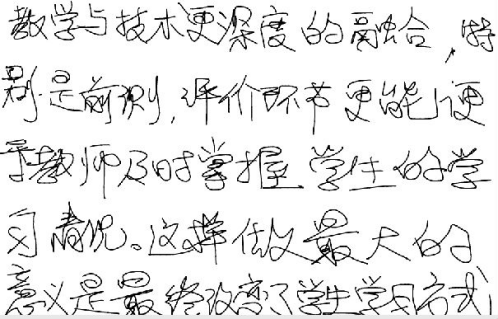 教学与技术更深度的融合,特
别是前测,评价环节更能便
于教师及时掌握学生的学
习情况。这样做最大的
意义是最终改变了学生学习方式